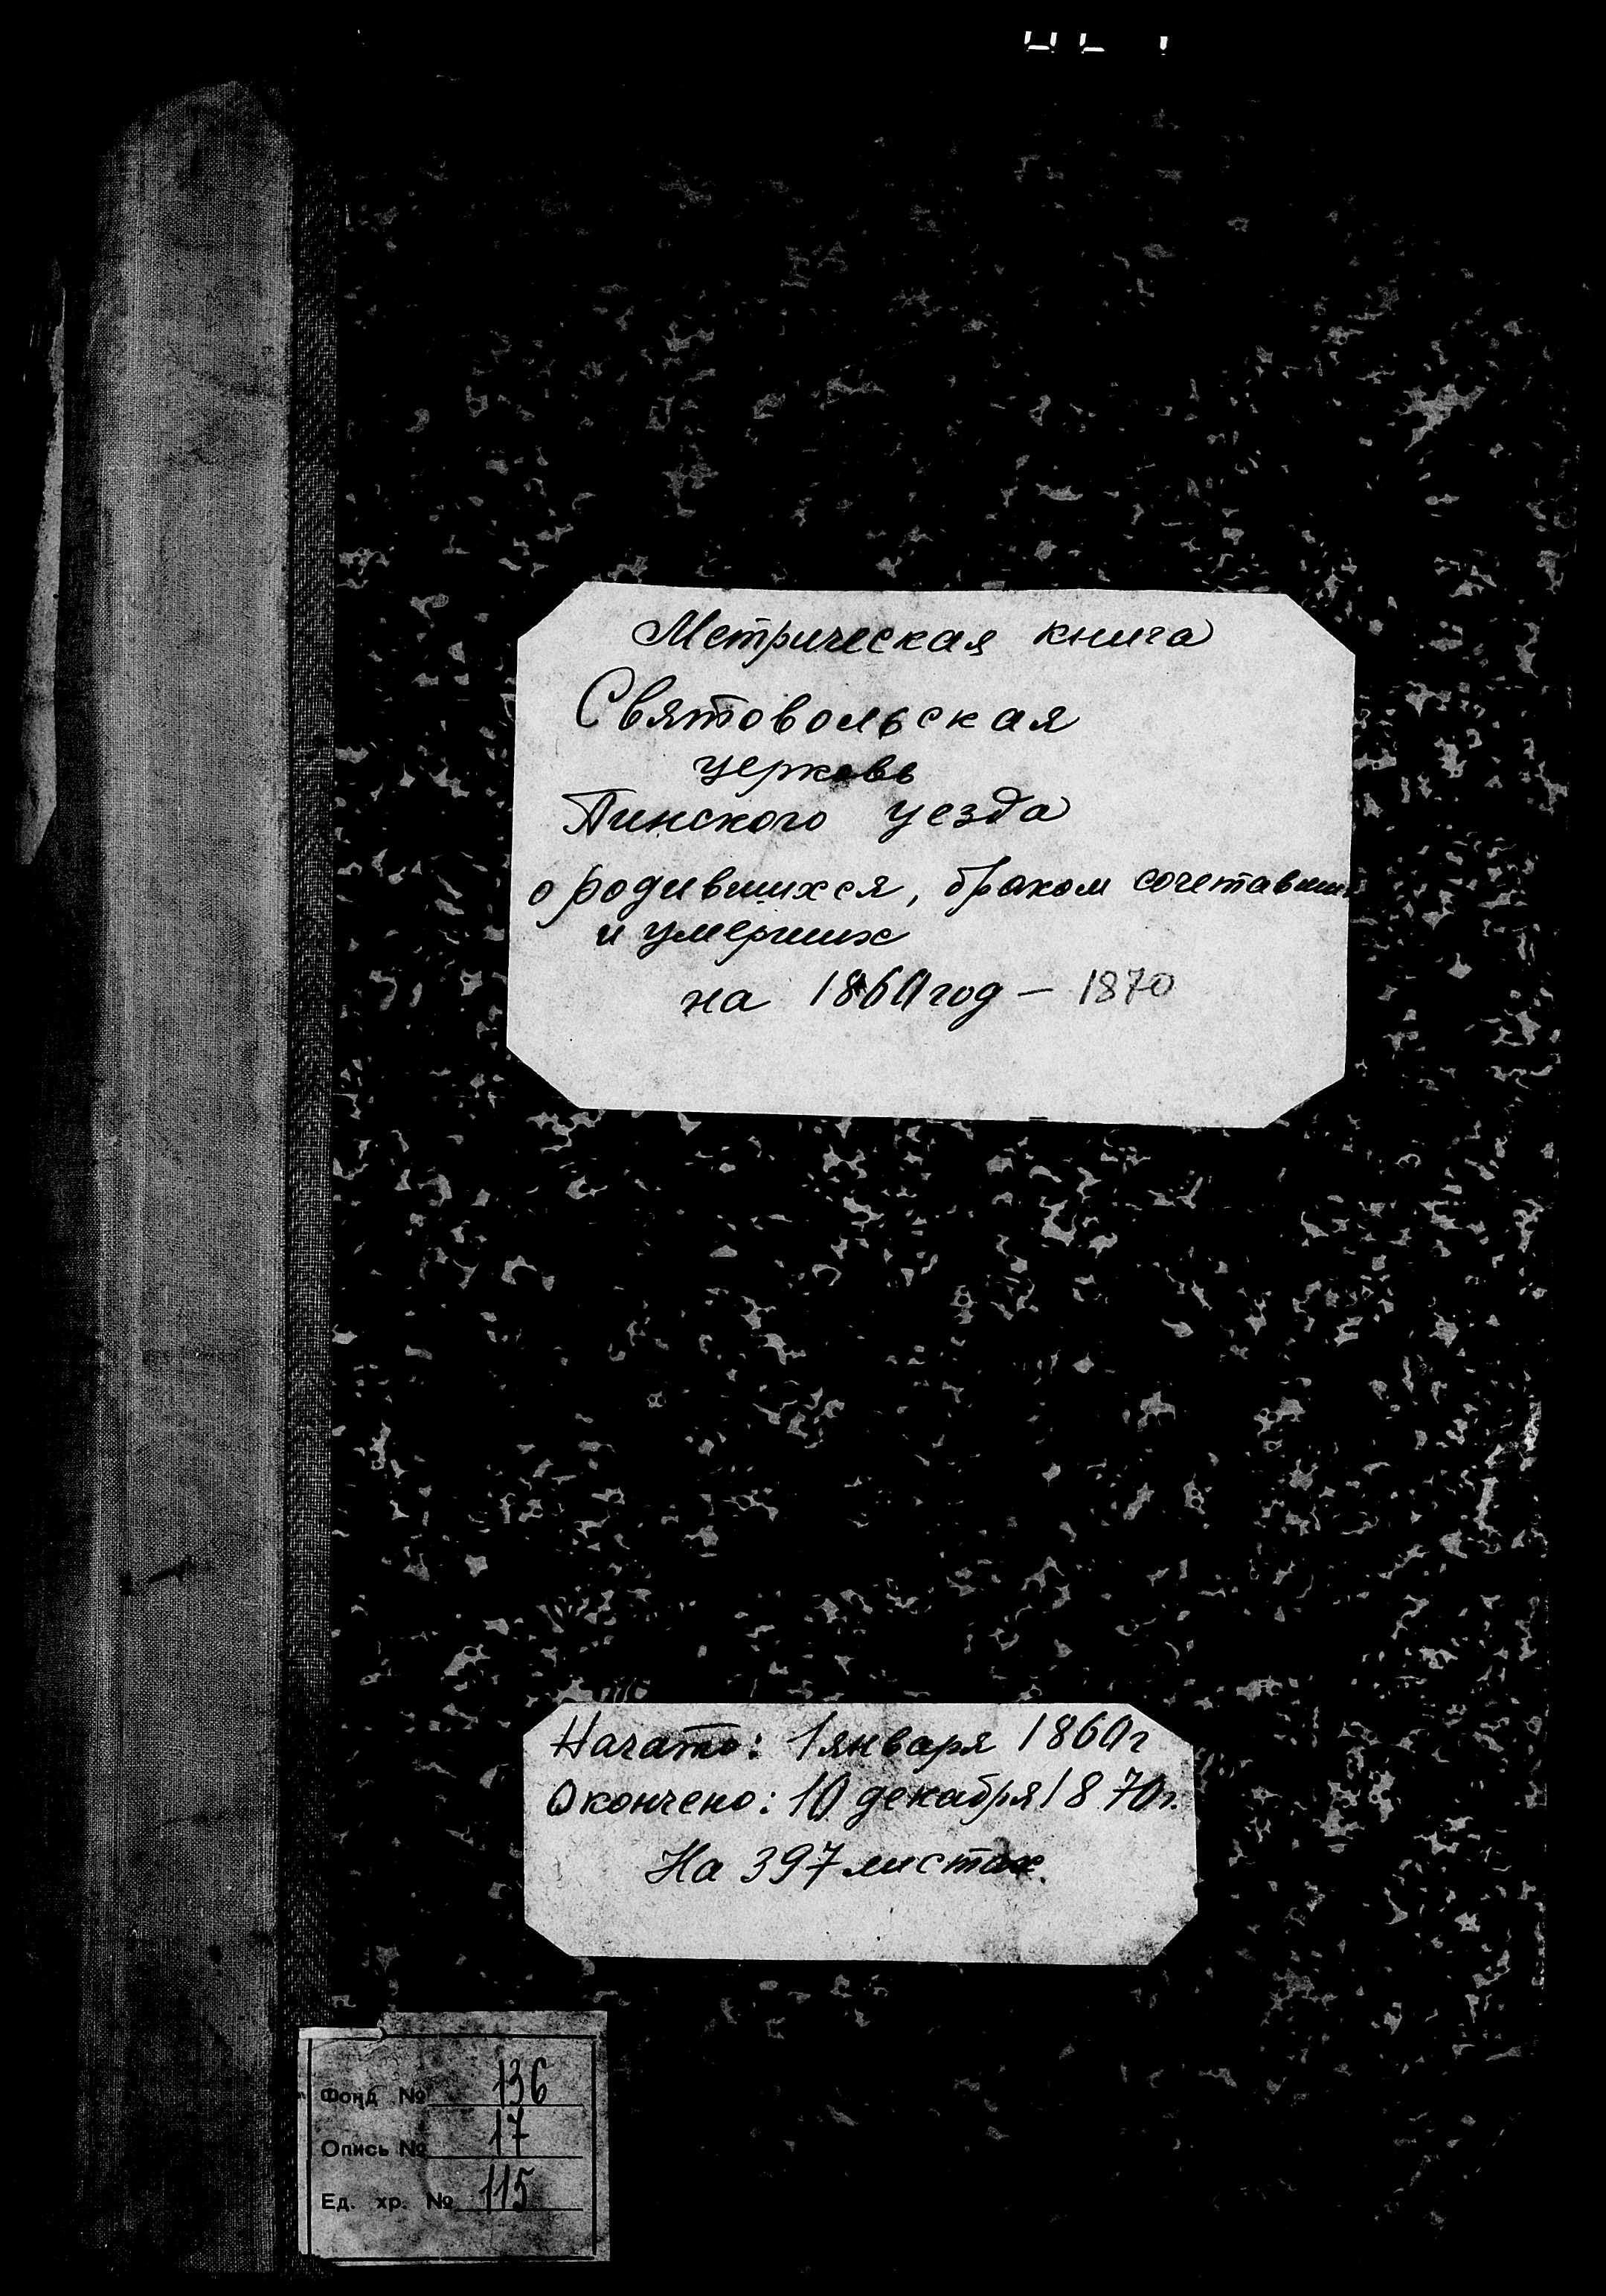 Метрическая книга
Святовольская
церковь
Пинского уезда
о родившихся, браком сочетавших
и умерших
на 1860 год – 1870
Начато: 1 января 1860 г
Окончено: 10 декабря 1870 г.
На 397 листах.
Фонд № 136
Опись № 17
Ед. хр. № 115